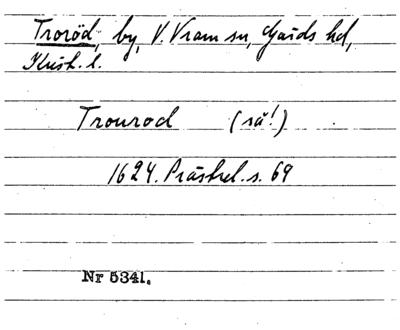 Troröd, by, V. Vram sn, Gärds hd,
Krist. l.
Trourod (så!)
1624. Prästrel. s. 69
Nr 5341.